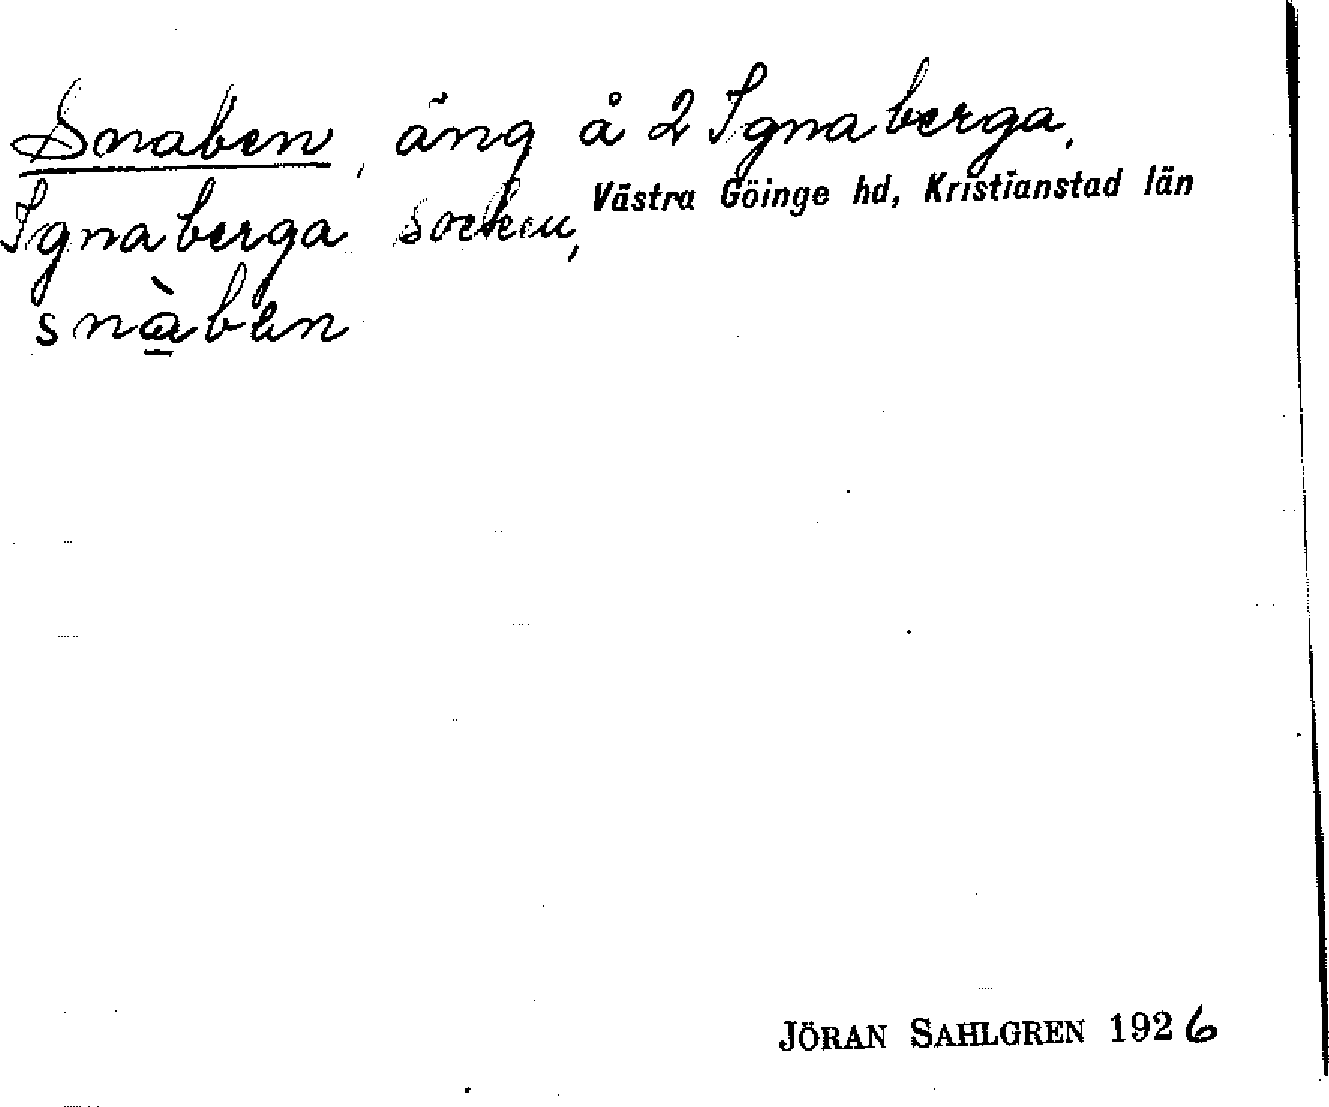 Snaben, äng å 2 Ignaberga,
Ignaberga socken, Västra Göinge hd, Kristianstad län
snàben
JÖRAN SAHLGREN 1926